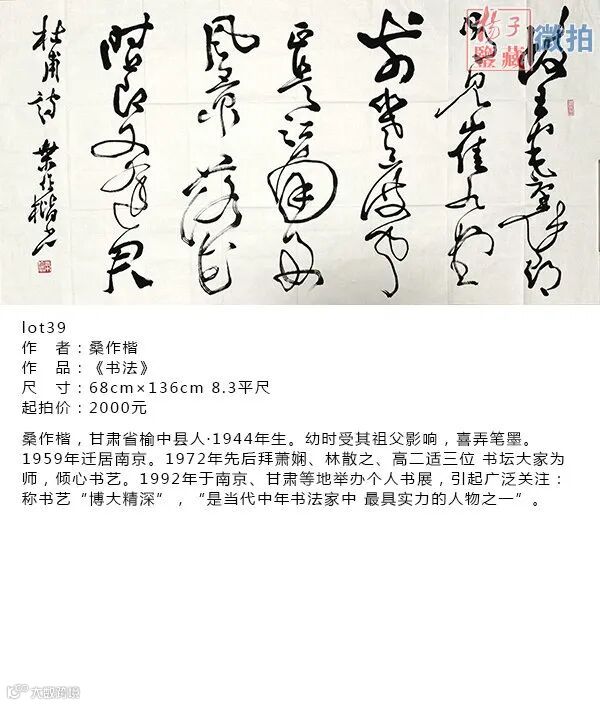 岐王宅裏尋
常見崔九堂
前幾度聞
正是江南好
風景落花
時節又逢君
杜甫詩 桑作楷书
揚子鑒藏 微拍
lot39
作 者：桑作楷
作 品：《书法》
尺 寸：68cm×136cm 8.3平尺
起拍价：2000元
桑作楷，甘肃省榆中县人·1944年生。幼时受其祖父影响，喜弄笔墨。
1959年迁居南京。1972年先后拜萧娴、林散之、高二适三位 书坛大家为
师，倾心书艺。1992年于南京、甘肃等地举办个人书展，引起广泛关注：
称书艺“博大精深”，“是当代中年书法家中 最具实力的人物之一”。